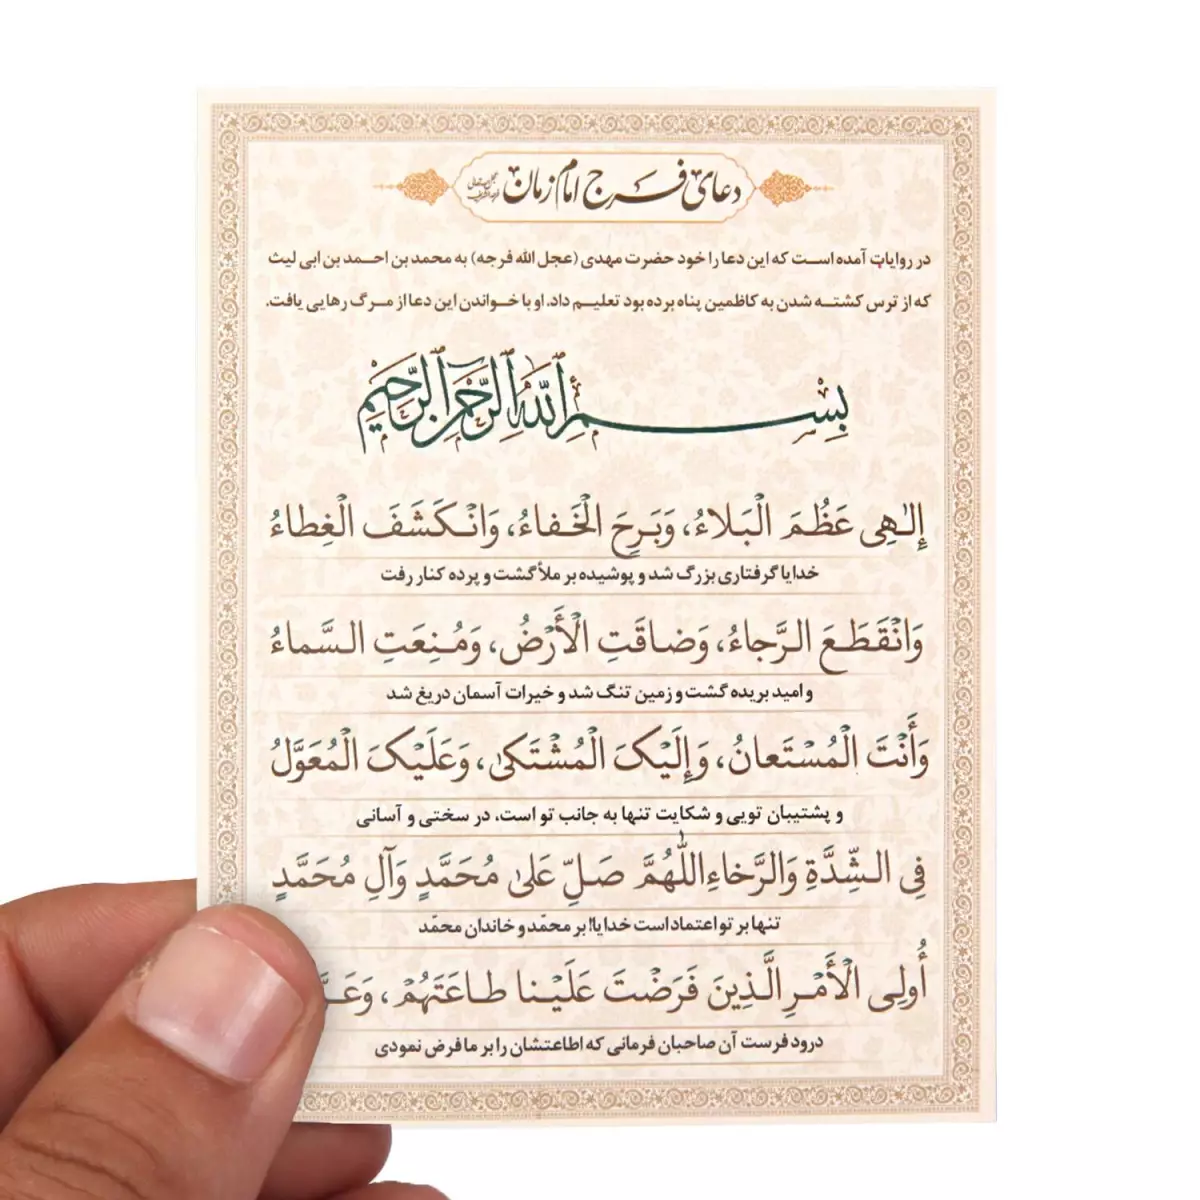 دعای فرج امام زمان
در روایات آمده است که این دعا را خود حضرت مهدی (عجل الله فرجه) به محمد بن احمد بن ابی لیث
که از ترس کشته شدن به کاظمین پناه برده بود تعلیم داد. او با خواندن این دعا از مرگ رهایی یافت.
بِسْمِ اللَّهِ الرَّحْمنِ الرَّحِيمِ
إِلـٰهِی عَظُمَ الْبَلاءُ، وَبَرِحَ الْخَفاءُ، وَانْکَشَفَ الْغِطاءُ
خدایا گرفتاری بزرگ شد و پوشیده بر ملأ گشت و پرده کنار رفت
وَانْقَطَعَ الرَّجاءُ، وَضاقَتِ الْأَرْضُ، وَمُنِعَتِ السَّماءُ
و امید بریده گشت و زمین تنگ شد و خیرات آسمان دریغ شد
وَأَنْتَ الْمُسْتَعانُ، وَإِلَیْکَ الْمُشْتَکیٰ، وَعَلَیْکَ الْمُعَوَّلُ
و پشتیبان تویی و شکایت تنها به جانب تو است، در سختی و آسانی
فِی الشِّدَّةِ وَالرَّخاءِ اللّٰهُمَّ صَلِّ عَلیٰ مُحَمَّدٍ وَآلِ مُحَمَّدٍ
تنها بر تو اعتماد است خدایا! بر محمّد و خاندان محمّد
أُولِی الْأَمْرِ الَّذِینَ فَرَضْتَ عَلَیْنا طاعَتَهُمْ،
درود فرست آن صاحبان فرمانی که اطاعتشان را بر ما فرض نمودی